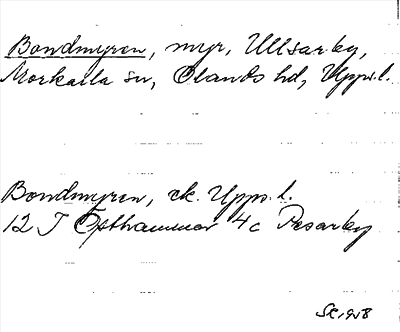 Bondmyren, myr, Ullsarby,
Morkarla sn, Olands hd, Upps.l.
Bondmyren, ek. Upps. l.
12 I Östhammar 4c Pesarby